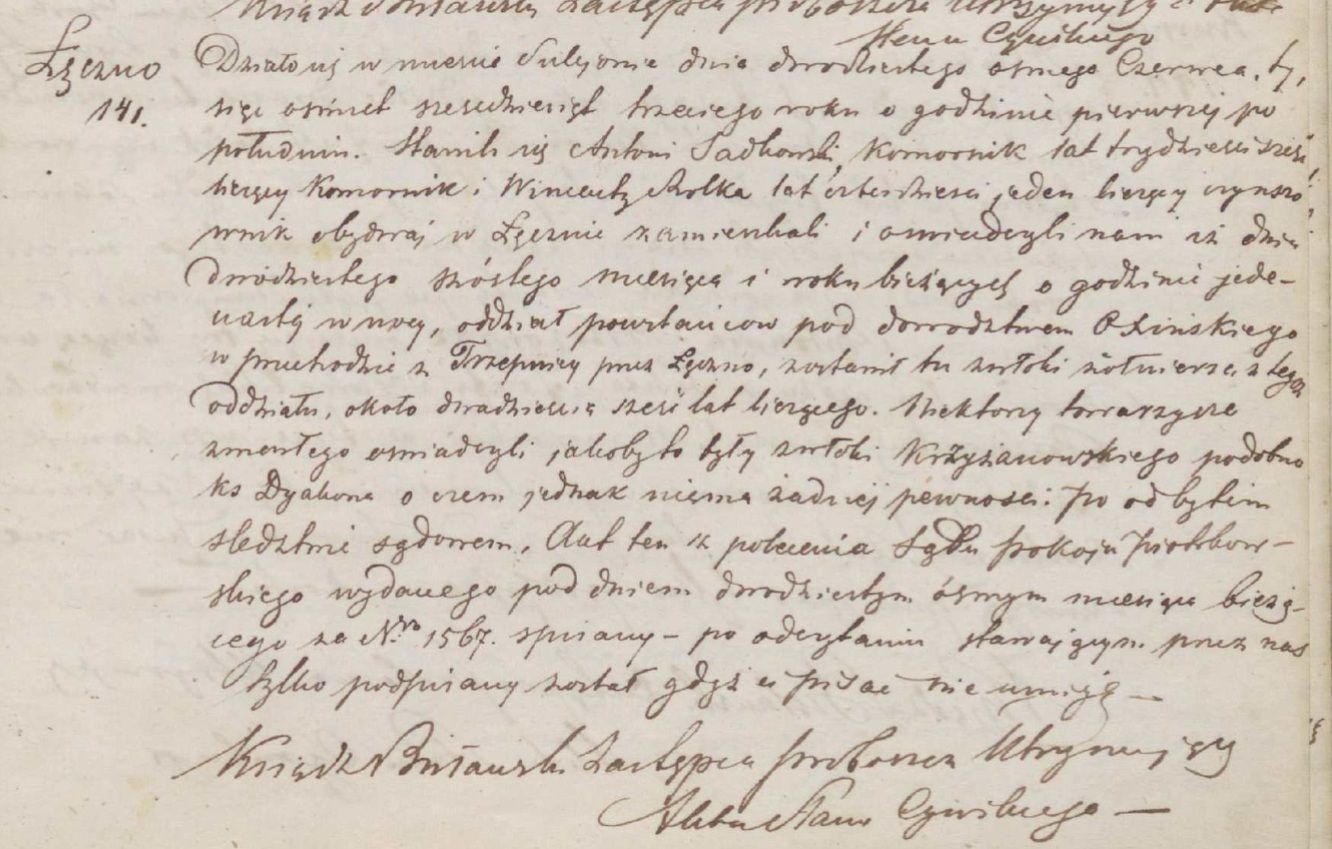 Ksiądz Zastępca proboszcza Utrzymujący
Stanu Cywilnego
Łęczno
141.
Działo się w mieście Sulejowie dnia dwudziestego osmego Czerwca, ty,
siąc ośmset sześćdziesiąt trzeciego roku o godzinie pierwszej po
południu. Stawili się Antoni Sadkowski, Komornik lat trydzieści sześć
liczący Komornik i Wincenty Rolka lat czterdzieści jeden liczący czynszo
wnik obydwaj w Łęcznie zamieszkali i oswiadczyli nam iż dnia
dwódziestego szóstego miesiąca i roku bieżących o godzinie jede-
nastej w nocy, oddział powstańcow pod dowodztwem Oxińskiego
w przechodzie z Trzepnicy przez Łęczno, zostawił tu zwłoki żołnierza z tegoż
oddziału, około dwadzieścia sześć lat liczącego. Niektorzy towarzysze
zmarłego oswiadczyli jakoby to były zwłoki Krzyżanowskiego podobno
ks Dyakona o czem jednak niema żadnej pewnosci. Po odbytem
sledztwie sądowem, Akt ten z polecenia Sądu Pokoju Piotrkow-
skiego wydanego pod dniem dwodziestym ósmym miesiąca bieżą-
cego za N.ro 1567. spisany – po odczytaniu stawającym przez nas
tylko podpisany został gdyż ci pisać nie umieją —
Ksiądz Zastępca proboszcza Utrzymujący
Akta Stanu Cywilnego —